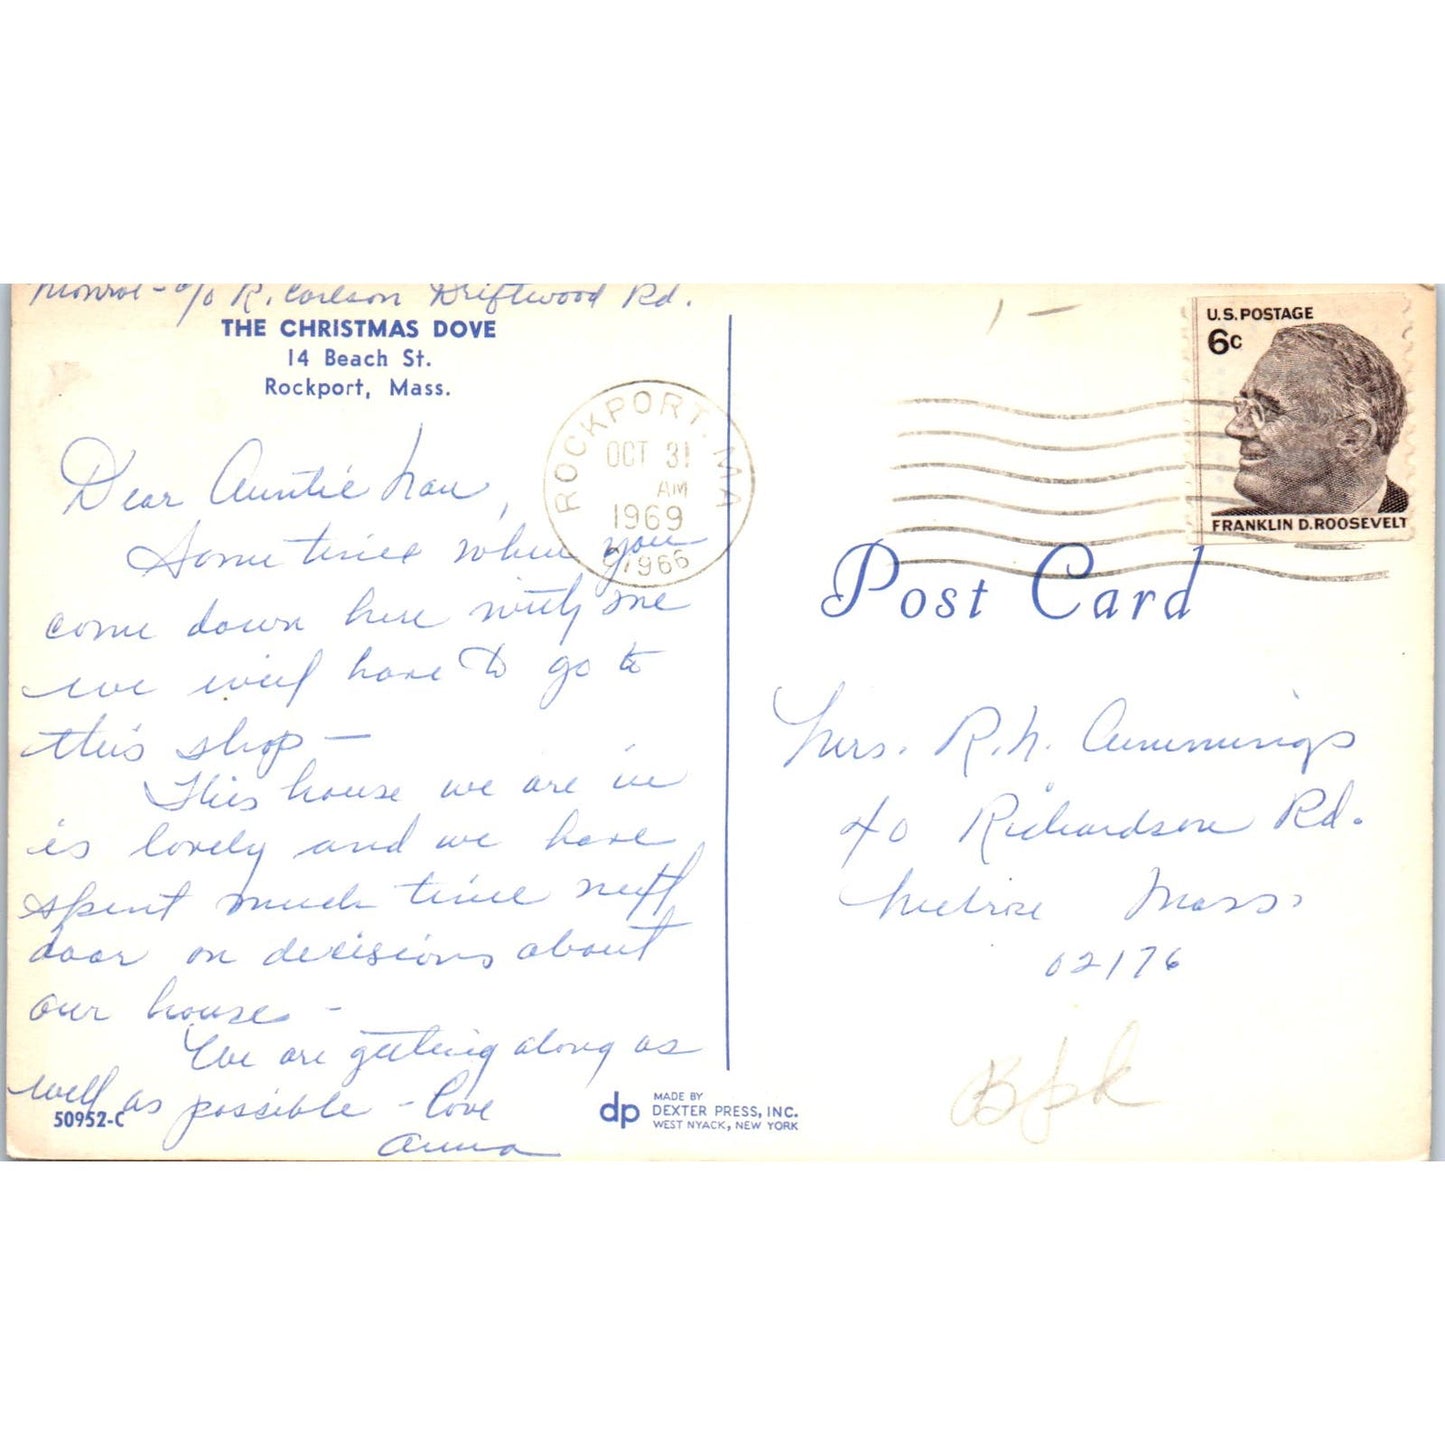 Monroe - c/o R. Carlson Driftwood Rd.
THE CHRISTMAS DOVE
14 Beach St.
Rockport, Mass.
Dear Auntie Nan,
Sometime when you
come down here with me
we will have to go to
this shop —
This house we are in
is lovely and we have
spent much time next
door on decisions about
our house -
We are getting along as
well as possible - Love
Anna
50952-C
dp
MADE BY
DEXTER PRESS, INC.
WEST NYACK, NEW YORK
ROCKPORT, MA
OCT 31
AM
1969
01966
1 -
U.S. POSTAGE
6c
FRANKLIN D. ROOSEVELT
Post Card
Mrs. R. N. Cummings
40 Richardson Rd.
Melrose Mass.
02176